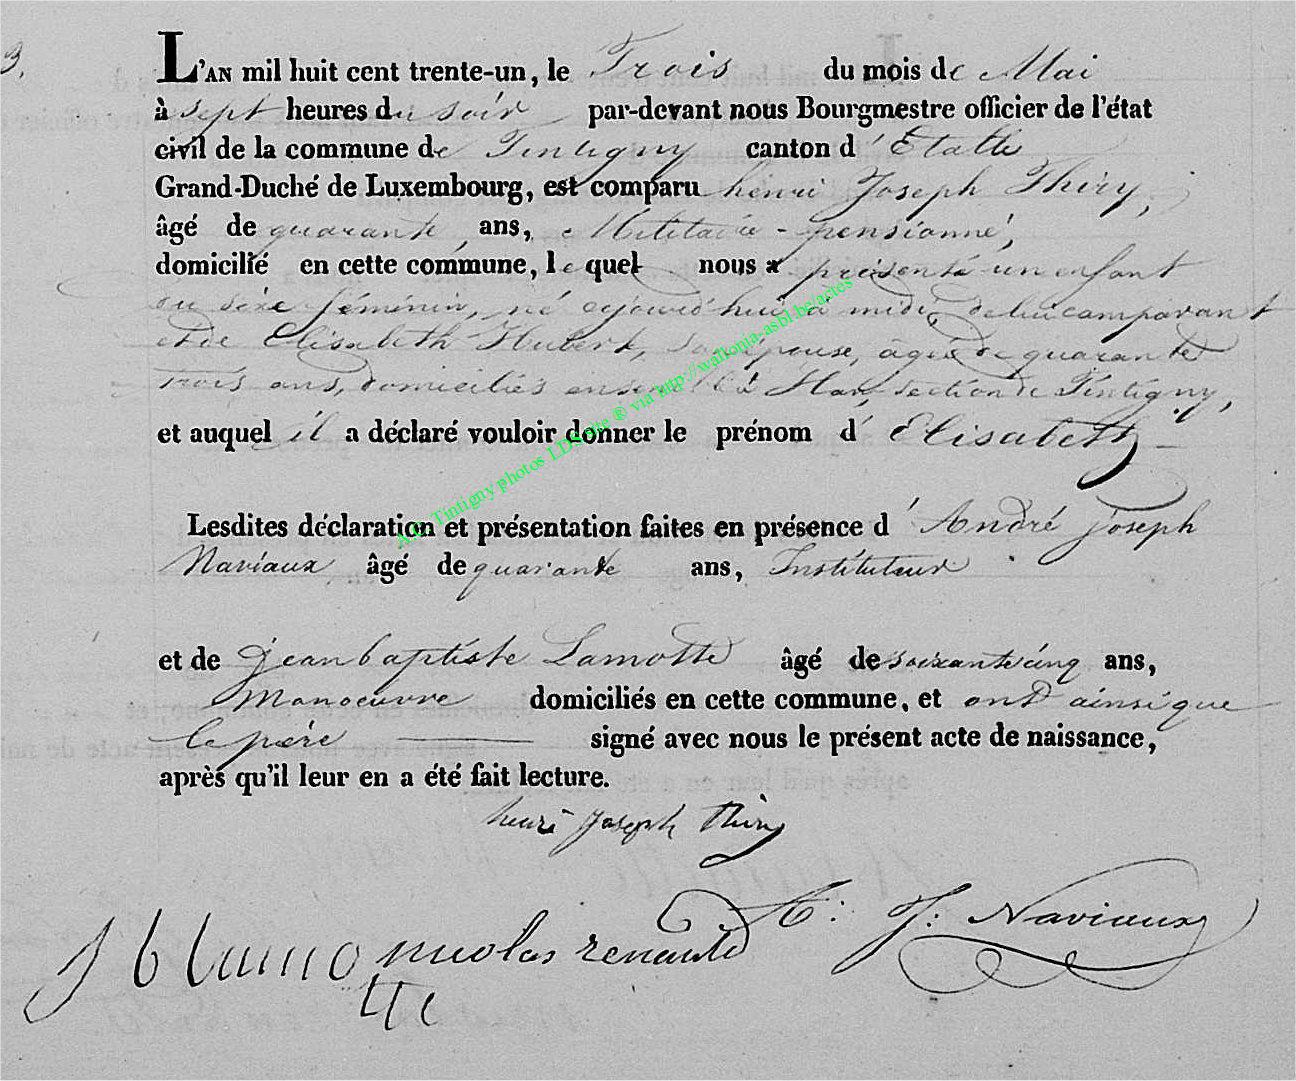 3.
L'AN mil huit cent trente-un, le Trois du mois de Mai
à sept heures du soir par-devant nous Bourgmestre officier de l'état
civil de la commune de Tintigny canton d'Etalle
Grand-Duché de Luxembourg, est comparu henri Joseph Thiry,
âgé de quarante ans, Militaire-pensionné,
domicilié en cette commune, lequel nous a présenté un enfant
du sèxe féminin, né aujourd'hui à midi, de lui comparant
et de Elisabeth Hubert, son épouse, âgée de quarante
trois ans, domiciliés ensemble à Han, section de Tintigny,
et auquel il a déclaré vouloir donner le prénom d'Elisabeth
Lesdites déclaration et présentation faites en présence d'André joseph
Naviaux âgé de quarante ans, Instituteur
et de jean baptiste Lamotte âgé de soixante cinq ans,
Manoeuvre domiciliés en cette commune, et ont ainsi que
le père signé avec nous le présent acte de naissance,
après qu'il leur en a été fait lecture.
henri joseph thiry
A: J: Naviaux
J b lamo nicolas renauld
tte
A.C. Tintigny photos LDS site ® via http://wallonia-asbl.be/actes